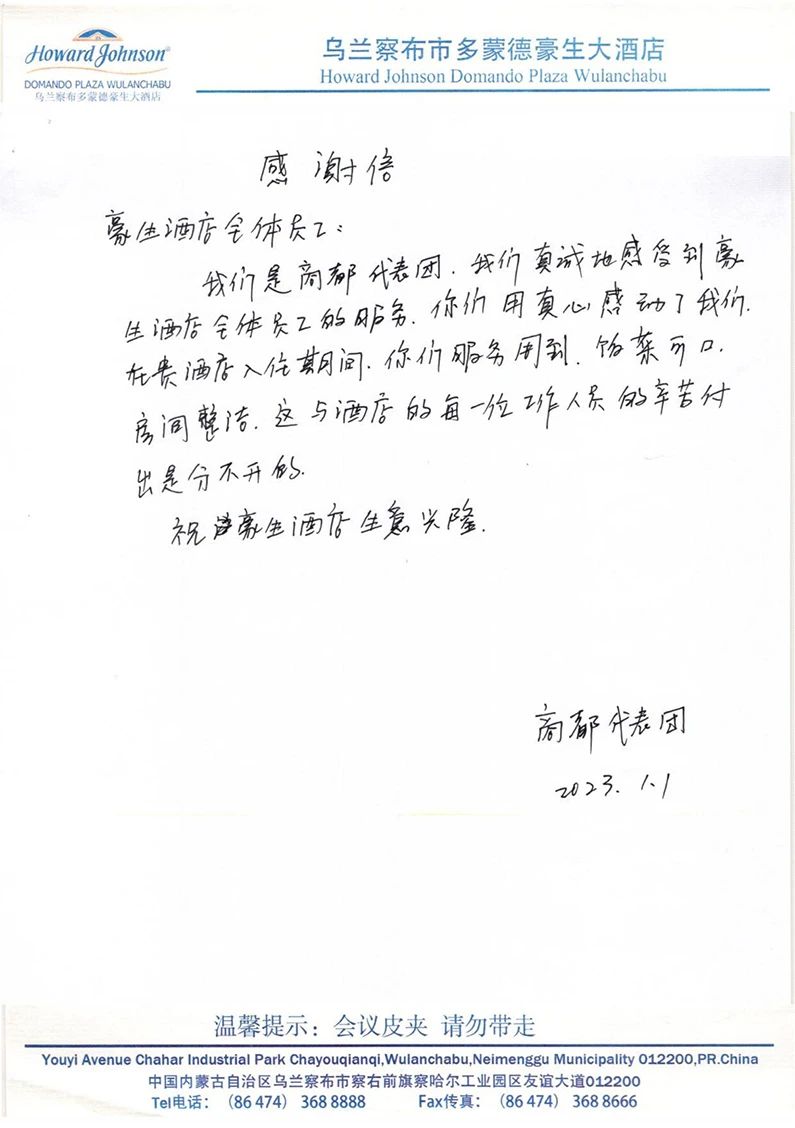 Howard Johnson®
DOMANDO PLAZA WULANCHABU
乌兰察布市多蒙德豪生大酒店
乌兰察布市多蒙德豪生大酒店
Howard Johnson Domando Plaza Wulanchabu
感谢信
豪生酒店全体员工:
我们是商都代表团.我们真诚地感受到豪
生酒店全体员工的服务.你们用真心感动了我们.
在贵酒店入住期间.你们服务周到、饭菜可口.
房间整洁.这与酒店的每一位工作人员的辛苦付
出是分不开的.
祝豪生酒店生意兴隆.
商都代表团
2023.1.1
温馨提示:会议皮夹 请勿带走
Youyi Avenue Chahar Industrial Park Chayouqianqi,Wulanchabu,Neimenggu Municipality 012200,PR.China
中国内蒙古自治区乌兰察布市察右前旗察哈尔工业园区友谊大道012200
Tel电话: (86 474) 368 8888 Fax传真: (86 474) 368 8666